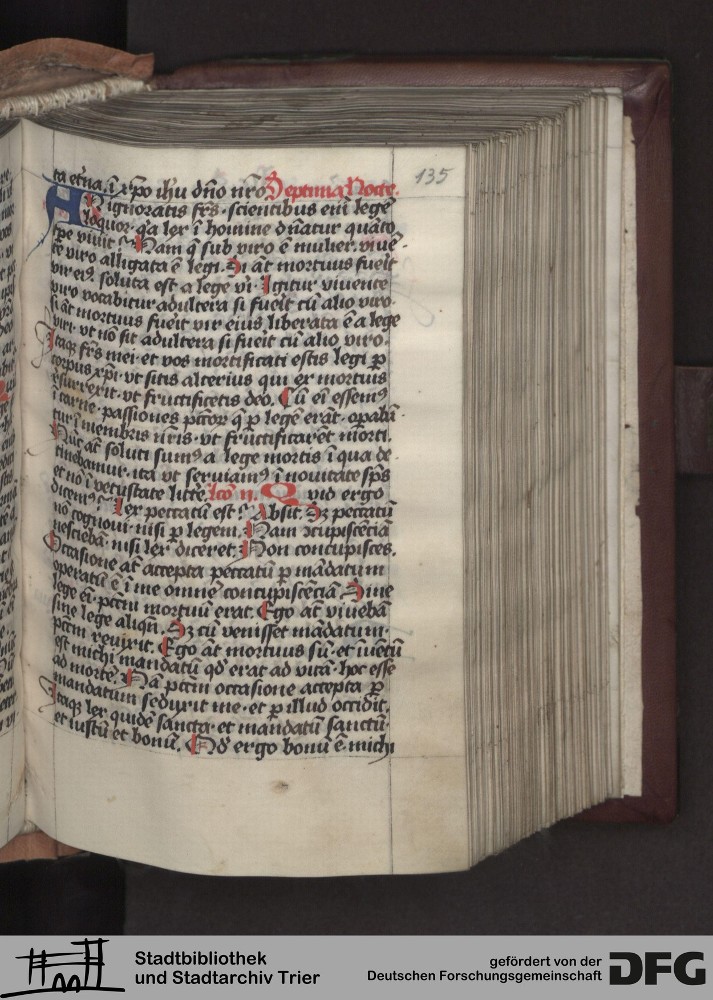 135
ta et̄na. ī xp̄o ih̄u dn̄o nr̄o Septima Nocte.
An ignoratis fr̄s. scientibus em̄ legē
loquor. q̇a lex ī homine dn̄atur quāto
tp̄e viuit. Nam q̄ sub viro ē mulier. viuē
te viro alligata ē legi. Si āt mortuus fueīt
vir eiꝰ soluta est a lege vi. Igitur viuente
viro vocabitur adultera si fueīt cū alio viro.
si āt mortuus fueīt vir eius liberata ē a lege
viri. vt nō sit adultera si fueīt cū alio viro.
Itaqꝫ fr̄s mei. et vos mortificati estis legi ꝑ
corpus xp̄i. vt sitis alterius qui ex mortuis
resurrexit. vt fructificetis deo. Cū eī essemꝰ
ī carne. passiones pctōꝝ q̄ ꝑ legē erāt. oꝑabā
tur ī membris nr̄is. vt fructificarēt morti.
Nūc āt soluti sumꝰ a lege mortis ī qua de
tinebamur. ita vt seruiamꝰ ī nouitate sp̄s
et nō ī vetustate litt̄e. lcō ij. Quid ergo
dicemꝰ. lex peccatū est. Absit. Sꝫ peccatū
nō cognoui. nisi ꝑ legem. Nam ꝯcupiscēciā
nesciebā. nisi lex diceret. Non concupisces.
Occasione āt accepta peccatū ꝑ mādatum
operatū ē ī me omnē concupiscēciā. Sine
lege eī. pctm̄ mortuū erat. Ego āt viuebā
sine lege aliqn̄. Sꝫ cū venisset mādatum.
pctm̄ reuixit. Ego āt mortuus sū. et īuētū
est michi mandatū qd̄ erat ad vitā. hoc esse
ad mortē. Nā pctm̄ occasione accepta ꝑ
mandatum seduxit me. et ꝑ illud occidit.
Itaqꝫ lex quidē sancta. et mandatū sanctū.
et iustū et bonū. Qd̄ ergo bonū ē michi
Stadtbibliothek
und Stadtarchiv Trier
gefördert von der
Deutschen Forschungsgemeinschaft
DFG